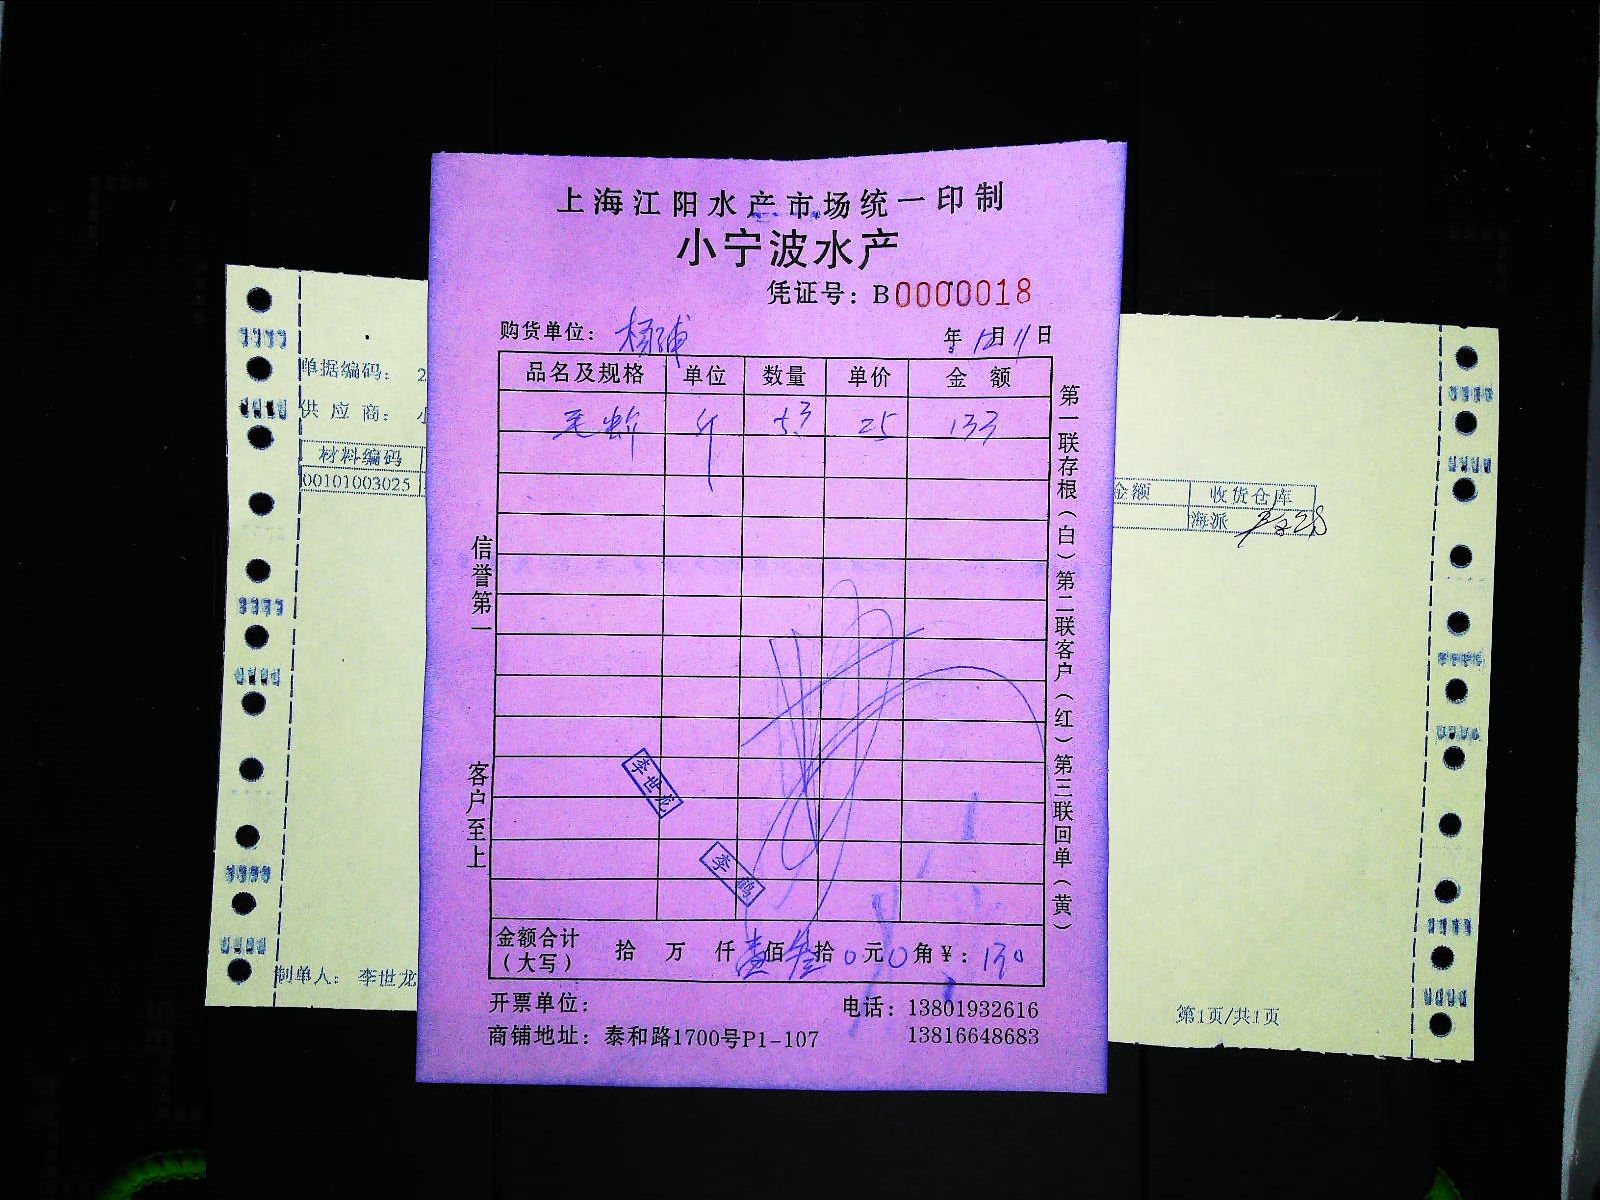 上海江阳水产市场统一印制
小宁波水产
凭证号：B0000018
购货单位：杨浦
年12月11日
品名及规格 单位 数量 单价 金额
毛蚶 斤 5.3 25 133
信誉第一
客户至上
第一联存根（白）第二联客户（红）第三联回单（黄）
李世龙
李鹤
金额合计（大写） 拾 万 仟壹佰叁拾0元0角￥：130
开票单位：
电话：13801932616
商铺地址：泰和路1700号P1-107
13816648683
单据编码：2
供应商：小
材料编码
00101003025
制单人：李世龙
金额 收货仓库
海派
第1页/共1页